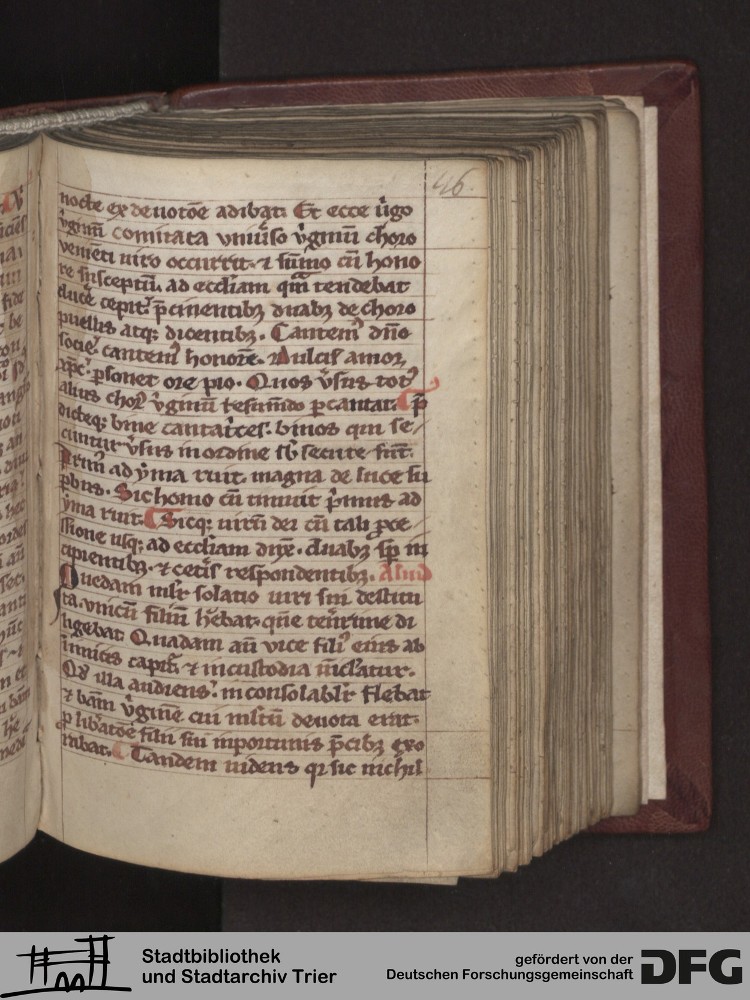 46.
nocte ex deuotōe adibat. Et ecce ūgo
v̓ginū comitata vniūso v̓ginū choro
venienti uiro occurrit. ⁊ sūmo cū hono
re susceptū. ad eccl̓iam qm̄ tendebat
ducē cepit. p̄cinentibꝫ duabꝫ de choro
puellis atqꝫ dicentibꝫ. Cantemꝰ dn̄o
socie. cantemꝰ honorē. Dulcis amor
xp̄c. ꝑsonet ore pio. Quos v̓sus totꝰ
alius chorꝰ v̓ginū ꝑcantat. p̄
dicteqꝫ bine cantatͥces. binos qui se
cuntur v̓sus in ordine sb̓secute sūt.
Prim̄ ad yma ruit. magna de luce su
ꝑbus. Sic homo cū tumuit p̄mus ad
yma ruit. Sicqꝫ uirū dei cū tali ꝓce
ssione usqꝫ ad eccl̓iam duxe. duabꝫ sp̄ in
cipientibꝫ. ⁊ cet̓is respondentibꝫ. Aliud
Quedam mlr̄ solatio uiri sui destitu
ta. vnicū filiū hēbat. quē ten̓rime di
ligebat. Quadam aū vice filiꝰ eius ab
inimicis capit̄. ⁊ in custodia
Qd̓ illa audiens. inconsolabilr̄ flebat
⁊ bām v̓ginē cui mltū deuota erat.
ꝓ lib̓atōe filii sui inportunis p̄cibꝫ exo
rabat. Tandem uidens qꝫ sic nichil
Stadtbibliothek
und Stadtarchiv Trier
gefördert von der
Deutschen Forschungsgemeinschaft
DFG